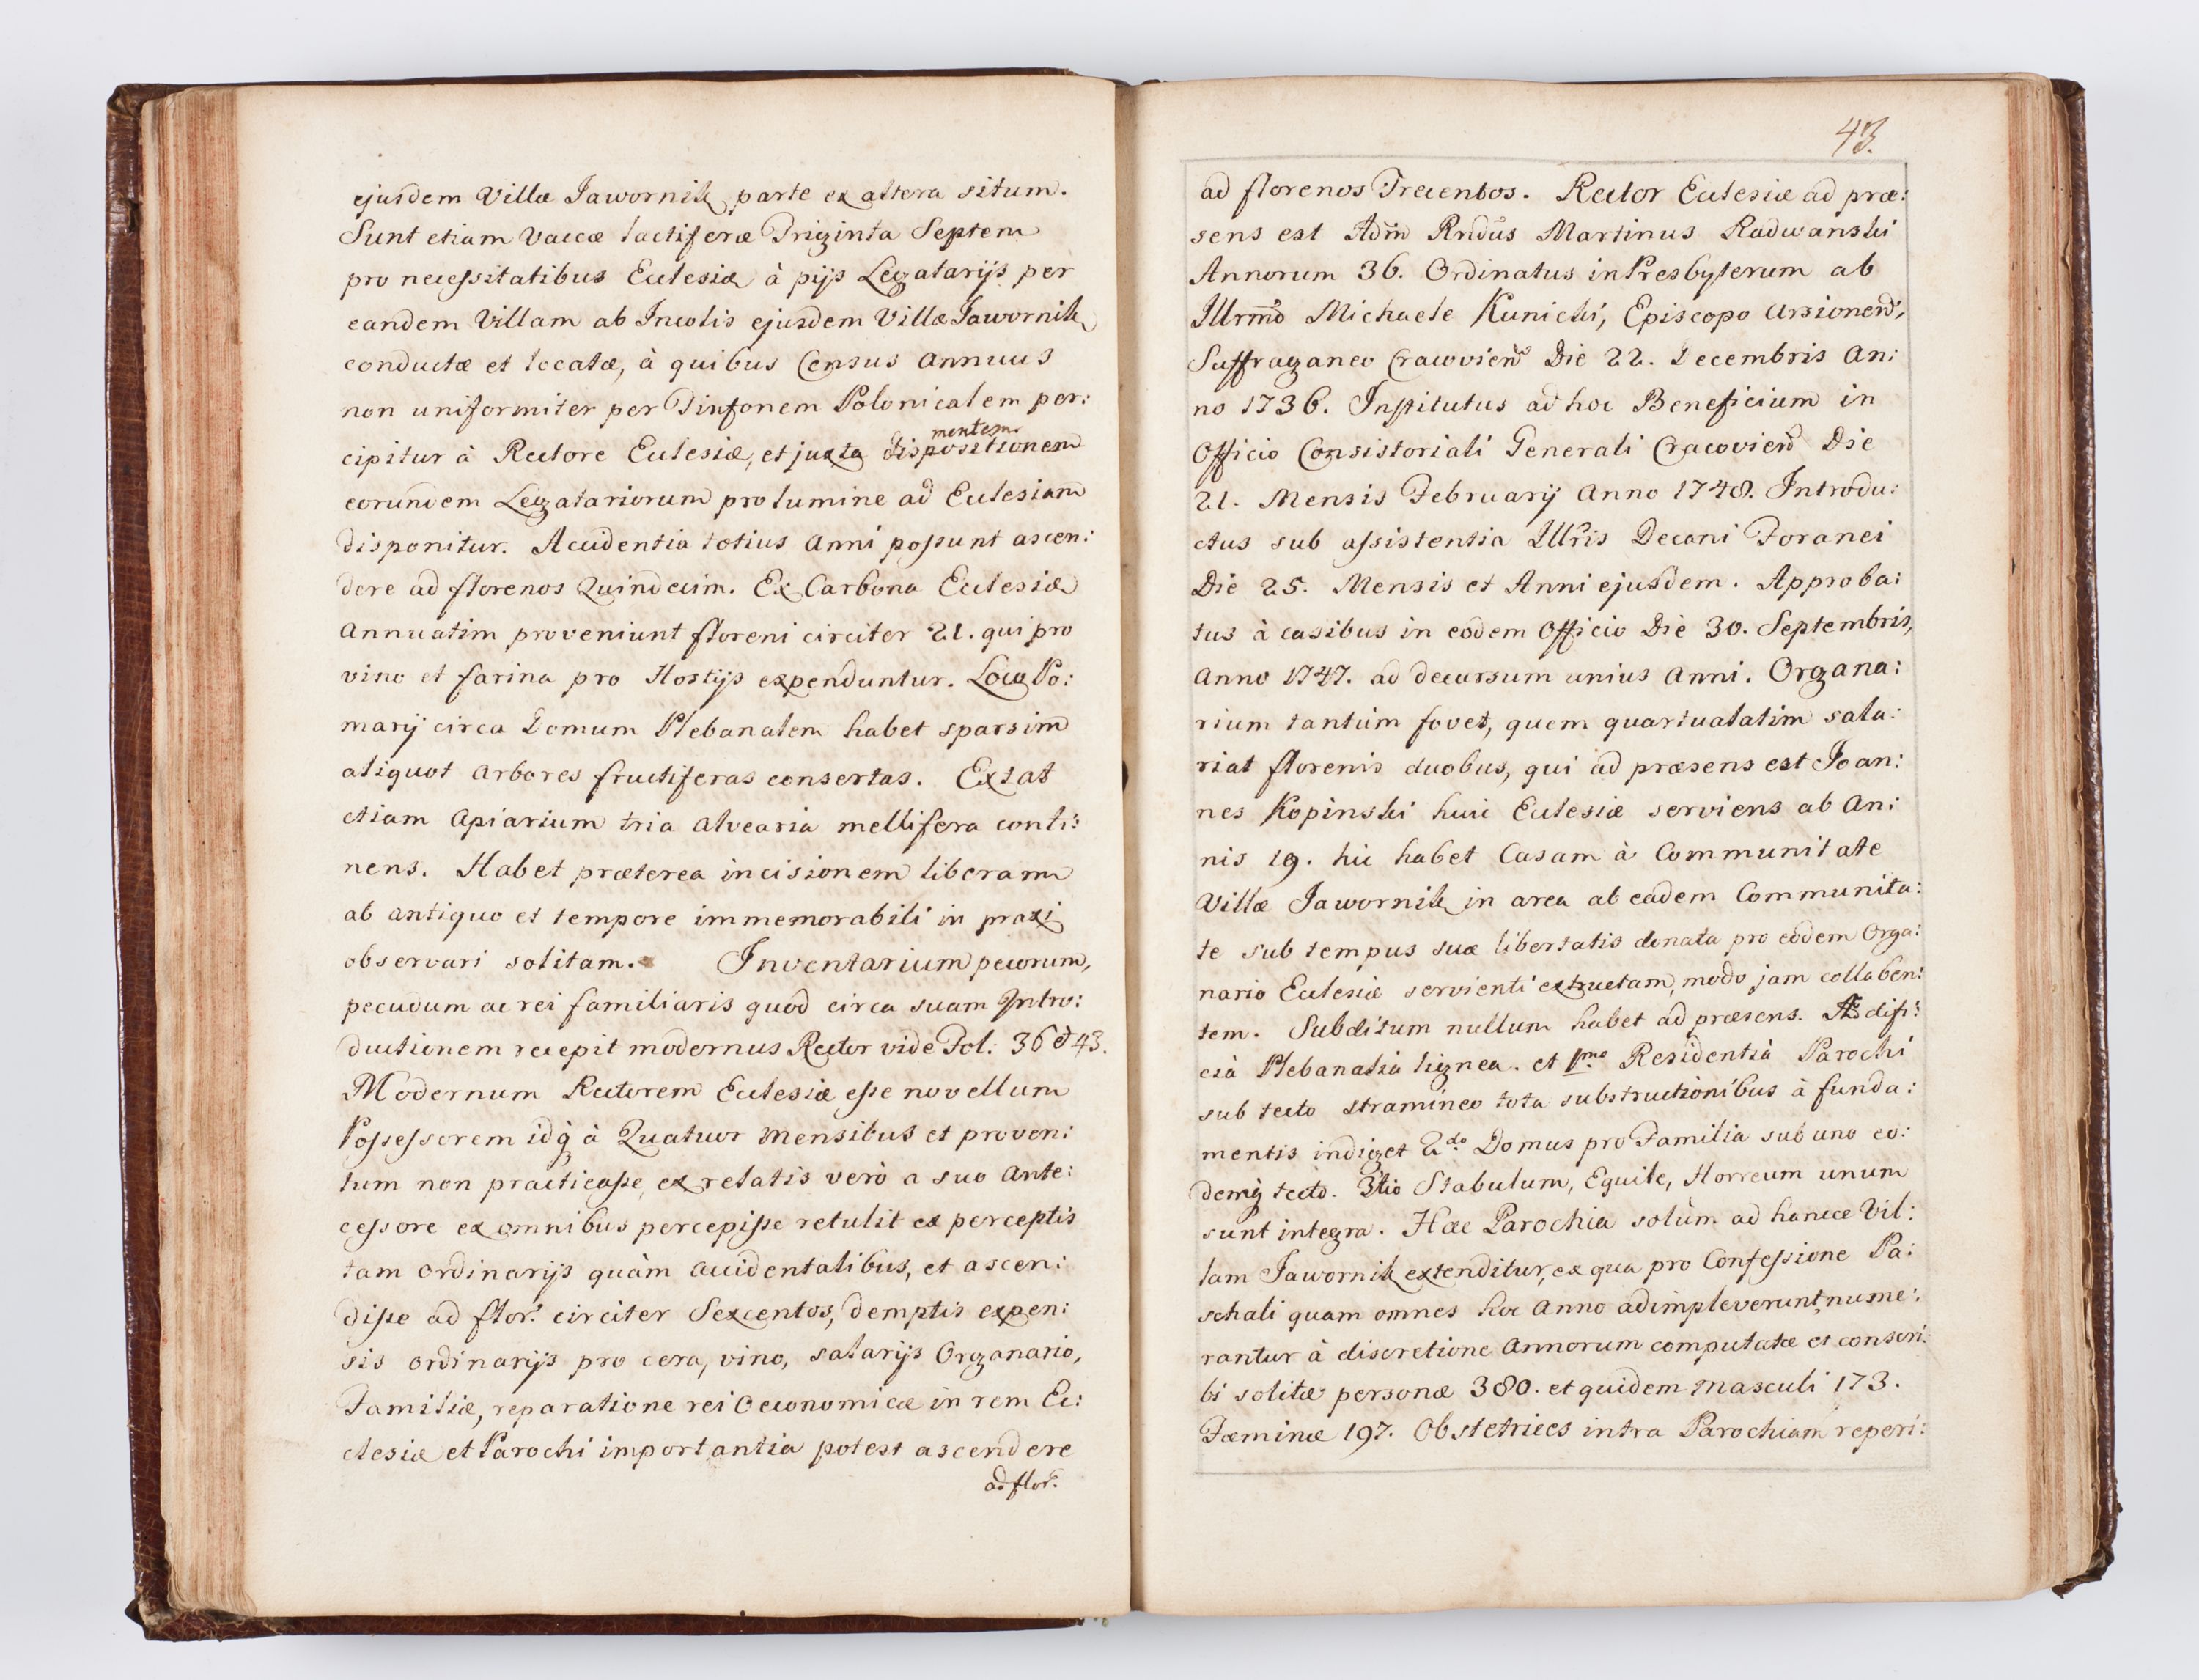 ejusdem Villæ Jawornik parte ex altera situm.
Sunt etiam Vaccæ lactiferæ Triginta Septem
pro necessitatibus Ecclesiæ à pijs Legatarijs per
eandem Villam ab Incolis ejusdem Villæ Jawornik
conductæ et locatæ, à quibus Census annuus
non uniformiter per Tinfonem Polonicalem per:
mentem
cipitur à Rectore Ecclesiæ, et juxta dispositionem
eorundem Legatariorum pro lumine ad Ecclesiam
disponitur. Accidentia totius anni possunt ascen:
dere ad florenos Quindecim. Ex Carbona Ecclesiæ
annuatim proveniunt floreni circiter 21. qui pro
vino et farina pro Hostijs expenduntur. Loco Po:
marij circa Domum Plebanalem habet sparsim
aliquot arbores fructiferas consertas. Extat
etiam apiarium tria alvearia mellifera conti:
nens. Habet præterea incisionem liberam
ab antiquo et tempore immemorabili in praxi
observari solitam. Inventarium pecorum,
pecudum ac rei familiaris quod circa suam Intro:
ductionem recepit modernus Rector vide Fol: 36 & 43.
Modernum Rectorem Ecclesiæ esse novellum
Possessorem idq̀ à Quatuor mensibus et proven:
tum non practicasse, ex relatis verò a suo ante:
cessore ex omnibus percepisse retulit ex perceptis
tam ordinarijs quàm accidentalibus, et ascen:
disse ad flor: circiter Sexcentos, demptis expen:
sis ordinarijs pro cera, vino, salarijs Organario,
Familiæ, reparatione rei Oeconomicæ in rem Ec:
clesiæ et Parochi importantia potest ascendere
ad flor:
43.
ad florenos Trecentos. Rector Ecclesiæ ad præ:
sens est Adm̃ Rndus Martinus Radwanski
Annorum 36. Ordinatus in Presbyterum ab
Illrmo Michaele Kunicki, Episcopo Arsionen̄,
Suffraganeo Cracovien̄ Die 22. Decembris An:
no 1736. Institutus ad hoc Beneficium in
Officio Consistoriali Generali Cracovien̄ Die
21. Mensis Februarij Anno 1748. Introdu:
ctus sub assistentia Illris Decani Foranei
Die 25. Mensis et Anni ejusdem. Approba:
tus à casibus in eodem Officio Die 30. Septembris,
Anno 1747. ad decursum unius Anni. Organa:
rium tantùm fovet, quem quartualatim sala:
riat florenis duobus, qui ad præsens est Joan:
nes Kopinski huic Ecclesiæ serviens ab An:
nis 19. hic habet Casam à Communitate
Villæ Jawornik in area ab eadem Communita:
te sub tempus suæ libertatis donata pro eodem Orga:
nario Ecclesiæ servienti extructam, modo jam collaben:
tem. Subditum nullum habet ad præsens. Ædifi:
cia Plebanalia lignea. et 1mo Residentia Parochi
sub tecto stramineo tota substructionibus à funda:
mentis indiget 2do Domus pro Familia sub uno eo:
demq̀ tecto. 3tio Stabulum, Equile, Horreum unum
sunt integra. Hæc Parochia solùm ad hancce Vil:
lam Jawornik extenditur, ex qua pro Confessione Pa:
schali quam omnes hoc Anno adimpleverunt, nume:
rantur à discretione Annorum computatæ et conscri:
bi solitæ personæ 380. et quidem masculi 173.
Fæminæ 197. Obstetrices intra Parochiam reperi: